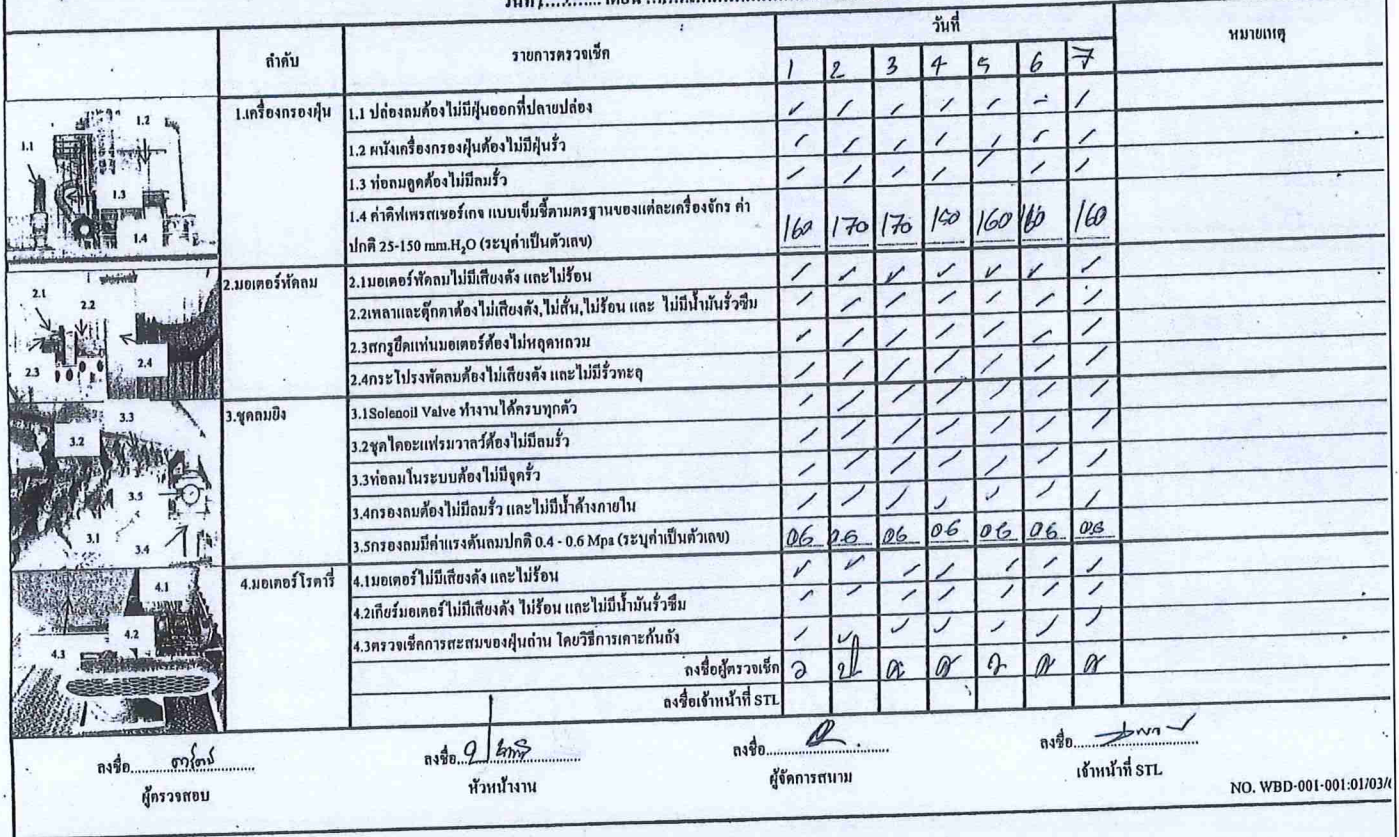 วันที่
ลำดับ รายการตรวจเช็ค หมายเหตุ
1 2 3 4 5 6 7
1.เครื่องกรองฝุ่น 1.1 ปล่องลมต้องไม่มีฝุ่นออกที่ปลายปล่อง ✓ / / / / - /
1.2 ผนังเครื่องกรองฝุ่นต้องไม่มีฝุ่นรั่ว / / / / / / /
1.3 ท่อลมดูดต้องไม่มีลมรั่ว / / / / / /
1.4 ค่าดิฟเพรสเชอร์เกจ แบบเข็มชี้ตามตรฐานของแต่ละเครื่องจักร ค่า
ปกติ 25-150 mm.H₂O (ระบุค่าเป็นตัวเลข) 160 170 170 150 160 160 160
1.1 1.2 1.3 1.4
2.มอเตอร์พัดลม 2.1มอเตอร์พัดลมไม่มีเสียงดัง และไม่ร้อน / / ✓ / ✓ ✓ /
2.2เพลาและตุ๊กตาต้องไม่เสียงดัง,ไม่สั่น,ไม่ร้อน และ ไม่มีน้ำมันรั่วซึม / / / / / / /
2.3สกรูยึดแท่นมอเตอร์ต้องไม่หลุดหลวม / / / / / / /
2.4กระโปรงพัดลมต้องไม่เสียงดัง และไม่มีรั่วทะลุ / / / / / / /
2.1 2.2 2.3 2.4
3.ชุดลมยิง 3.1Solenoil Valve ทำงานได้ครบทุกตัว / / / / / / /
3.2ชุดไดอะแฟรมวาลว์ต้องไม่มีลมรั่ว / / / / / / /
3.3ท่อลมในระบบต้องไม่มีจุดรั่ว / / / / / / /
3.4กรองลมต้องไม่มีลมรั่ว และไม่มีน้ำค้างภายใน / / / / / / /
3.5กรองลมมีค่าแรงดันลมปกติ 0.4 - 0.6 Mpa (ระบุค่าเป็นตัวเลข) 06 0.6 06 06 06 06 06
3.3 3.2 3.5 3.1 3.4
4.มอเตอร์โรตารี่ 4.1มอเตอร์ไม่มีเสียงดัง และไม่ร้อน ✓ ✓ / / / / /
4.2เกียร์มอเตอร์ไม่มีเสียงดัง ไม่ร้อน และไม่มีน้ำมันรั่วซึม / / / / / / /
4.3ตรวจเช็คการสะสมของฝุ่นถ่าน โดยวิธีการเคาะก้นถัง / ✓ ✓ ✓ / / /
4.1 4.2 4.3
ลงชื่อผู้ตรวจเช็ค
ลงชื่อเจ้าหน้าที่ STL
ลงชื่อ ลงชื่อ ลงชื่อ ลงชื่อ
ผู้ตรวจสอบ หัวหน้างาน ผู้จัดการสนาม เจ้าหน้าที่ STL
NO. WBD-001-001:01/03/